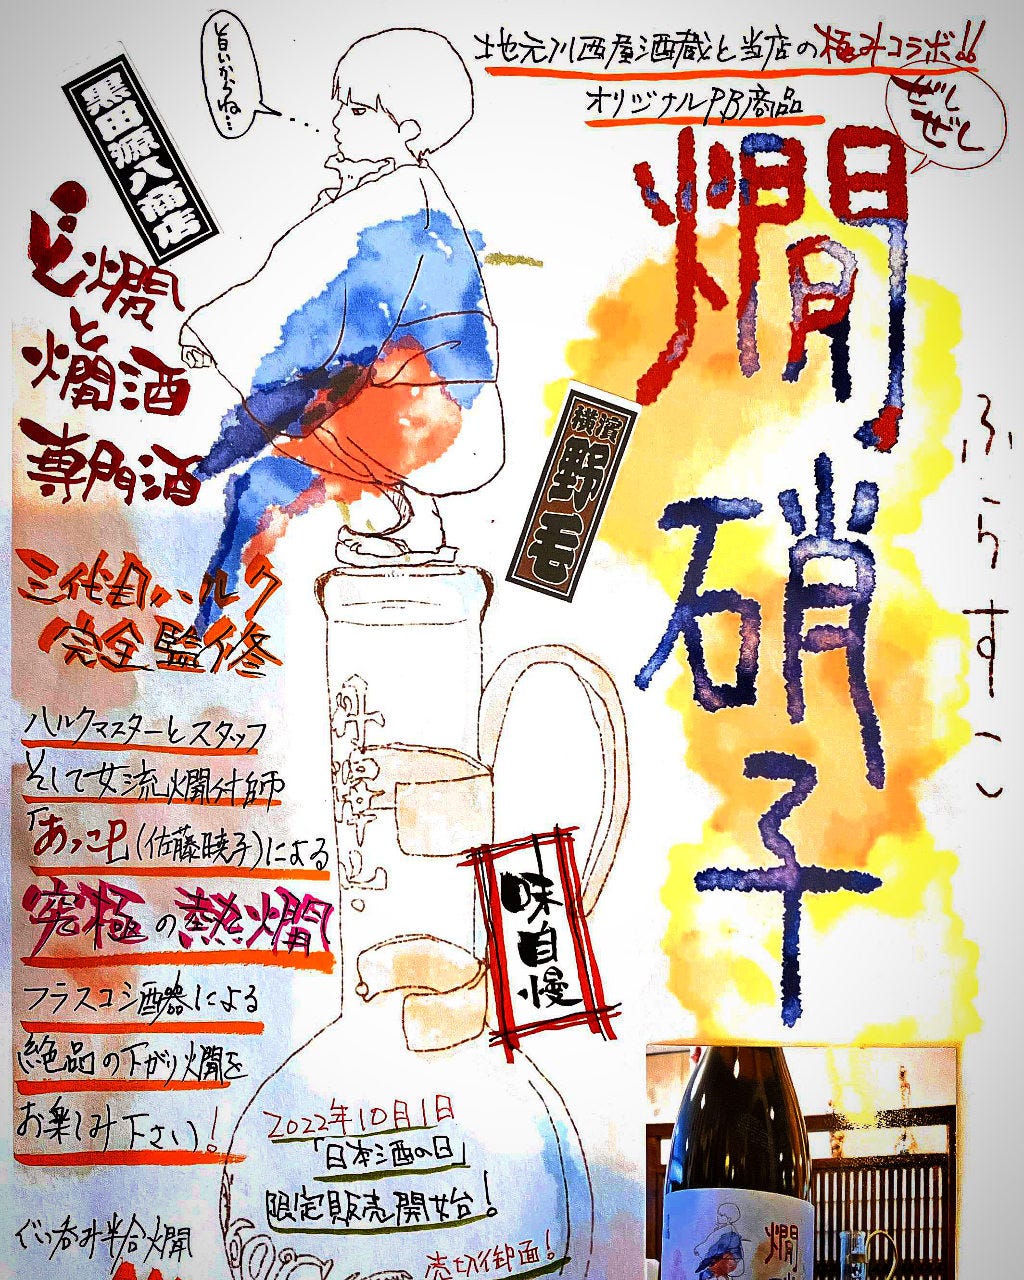 地元川西屋酒蔵と当店の極みコラボ!!
オリジナルPB商品
ぜし
ぜし
燗硝子
ふらすこ
旨いからね…
黒田源八商店
ど燗
と
燗酒
専門酒
横濱
野毛
三代目ハルク
完全監修
ハルクマスターとスタッフ
そして女流燗付師
「あっこ巴(佐藤暁子)による
究極の熱燗
フラスコ酒器による
絶品の下がり燗を
お楽しみ下さい!
味自慢
2022年10月1日
「日本酒の日」
限定販売開始!
売切御免!
ぐい呑み半合燗
燗